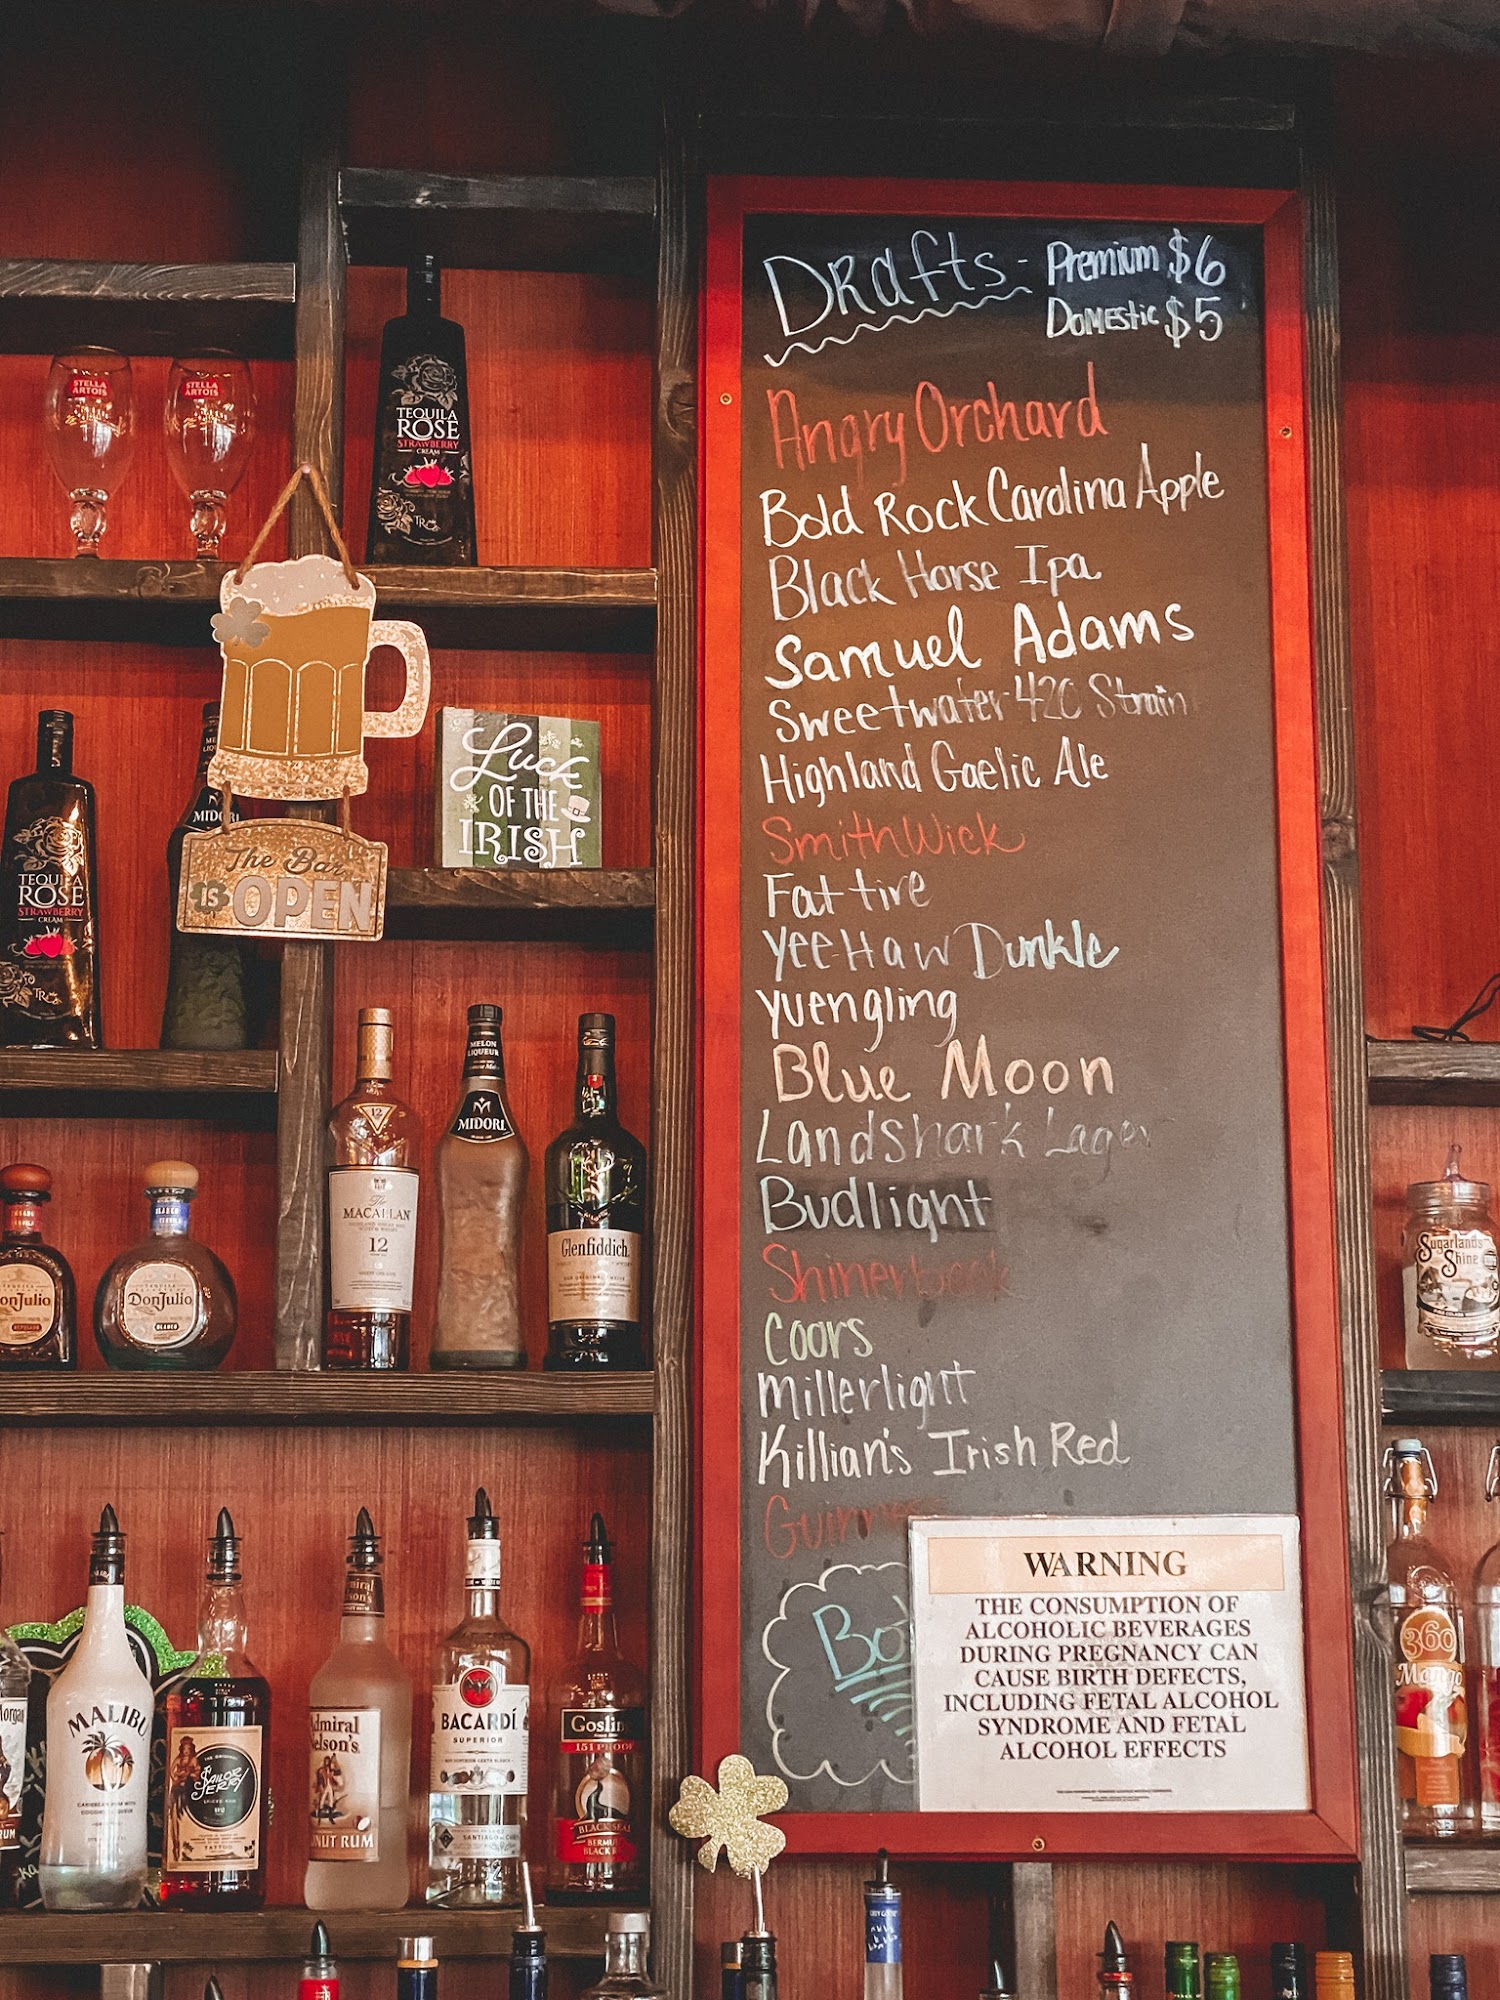 Drafts - Premium $6
Domestic $5
Angry Orchard
Bold Rock Carolina Apple
Black Horse Ipa
Samuel Adams
Sweetwater 420 Strain
Highland Gaelic Ale
SmithWick
Fat tire
Yee-Haw Dunkle
Yuengling
Blue Moon
Landshark Lager
Budlight
Shinerbock
Coors
Millerlight
Killian's Irish Red
Guinness
Bo
WARNING
THE CONSUMPTION OF
ALCOHOLIC BEVERAGES
DURING PREGNANCY CAN
CAUSE BIRTH DEFECTS,
INCLUDING FETAL ALCOHOL
SYNDROME AND FETAL
ALCOHOL EFFECTS
STELLA
ARTOIS
STELLA
ARTOIS
TEQUILA
ROSE
STRAWBERRY
CREAM
TR
Luck
OF THE
IRISH
The Bar
IS OPEN
MIDORI
TEQUILA
ROSE
STRAWBERRY
CREAM
TR
12
The
MACALLAN
12
MELON
LIQUEUR
MIDORI
Glenfiddich
onJulio
DonJulio
BLANCO
Sugarlands
Shine
Morgan
RUM
MALIBU
THE ORIGINAL
SAILOR
JERRY
SPICED RUM
Admiral
Nelson's
NUT RUM
BACARDÍ
SUPERIOR
Goslin
151 PROOF
BLACK SEAL
BERMU
BLACK R
360
Mango